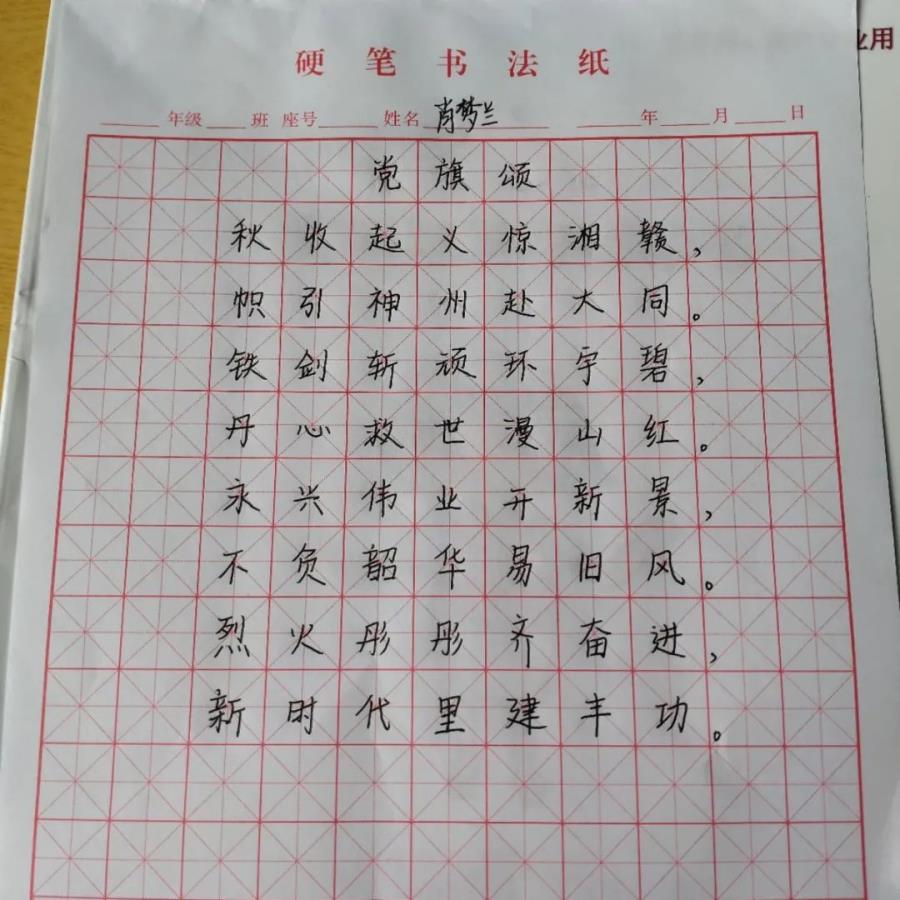 业用
硬笔书法纸
年级 班 座号 姓名 肖梦兰 年 月 日
党旗颂
秋收起义惊湘赣,
帜引神州赴大同。
铁剑斩顽环宇碧,
丹心救世漫山红。
永兴伟业开新景,
不负韶华易旧风。
烈火彤彤齐奋进,
新时代里建丰功。